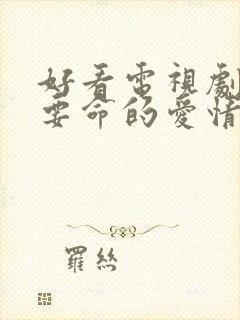 好看電視劇
要命的愛情
羅絲